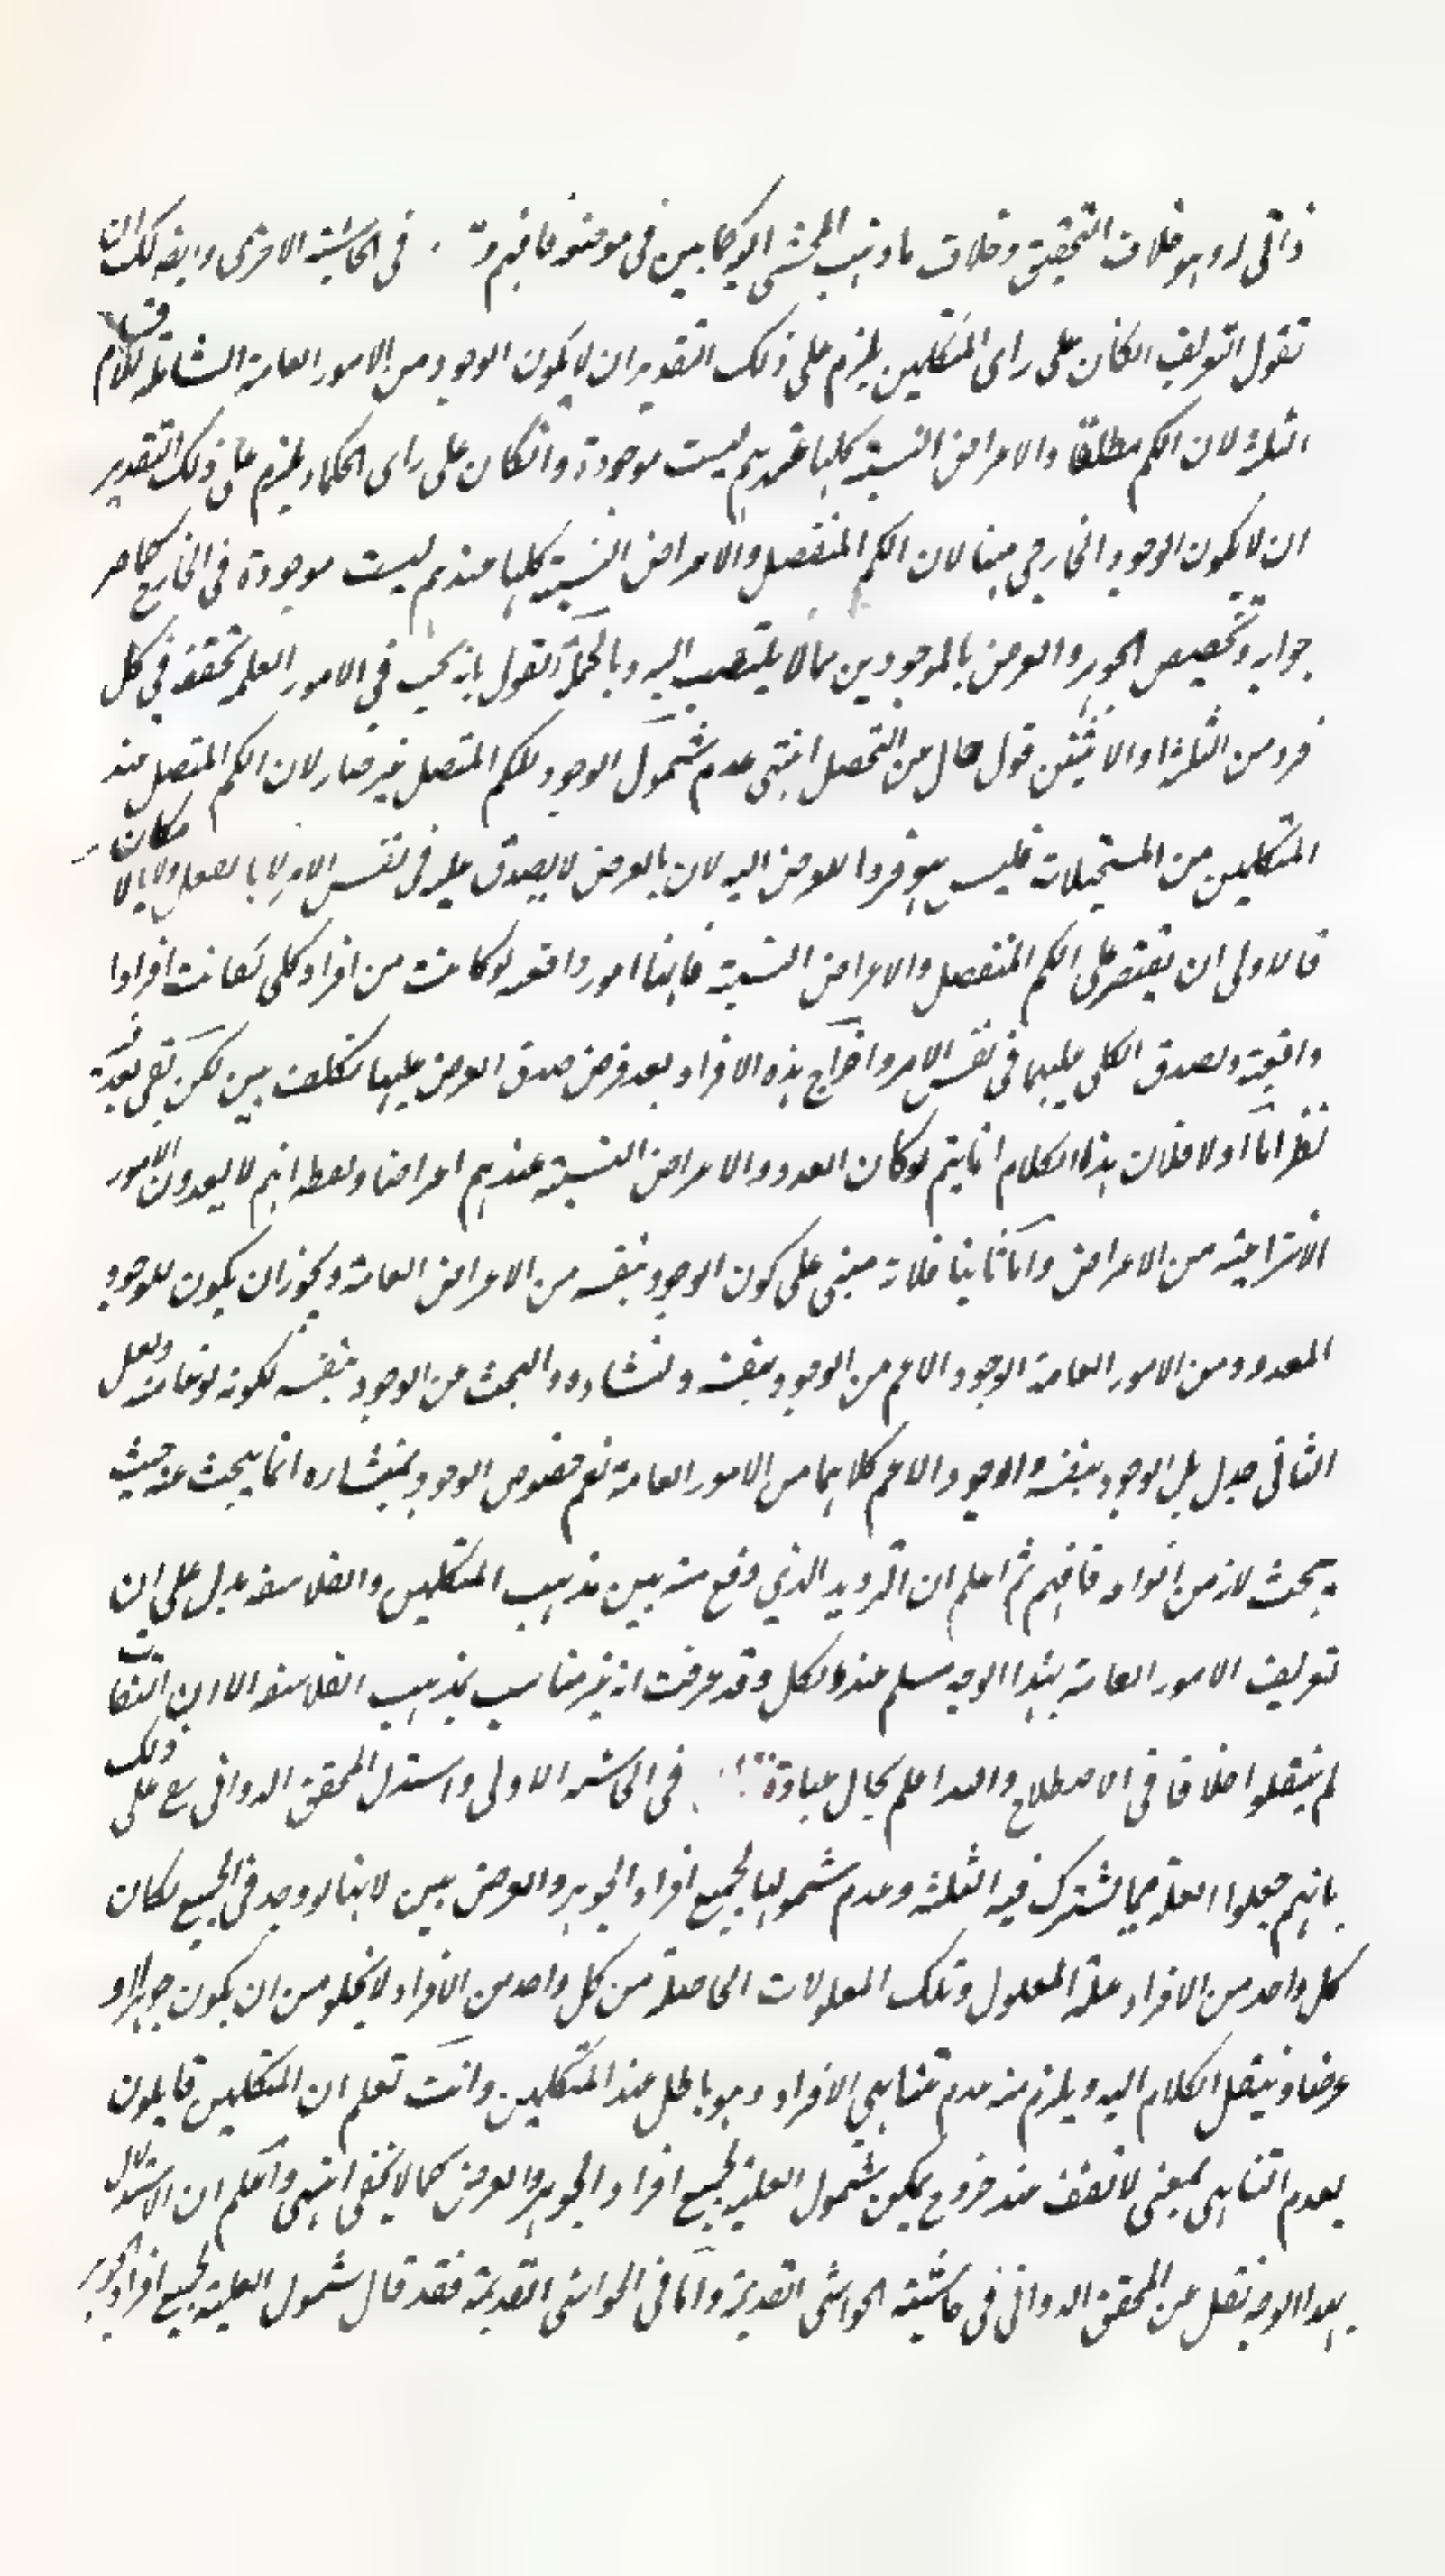 ذاتى له وهو خلاف التحقيق وخلاف ما ذهب المحشى اليه كما بين فى موضعه فافهم قوله فى الحاشية الاخرى وايضا لك ان
تقول التعريف الكان على راى المتكلمين يلزم على ذلك التقدير ان لا يكون الوجود من الامور العامة الشاملة للاقسام
الثلثة لان الكم مطلقا والاعراض النسبية كلها عندهم ليست موجودة وانكان على راى الحكماء يلزم على ذلك التقدير
ان لا يكون الوجود الخارجى منها لان الكم المنفصل والاعراض النسبية كلها عندهم ليست موجودة فى الخارج كما مر
جوابه وتخصيص الجوهر والعرض بالموجودين مما لا يلتفت اليه وبالجملة القول بانه يجب فى الامور العامة تحققه فى كل
فرد من الثلثة او الاثنين قول خال عن التحصيل انتهى عدم شمول الوجود للكم المتصل غير ضار لان الكم المتصل عند
المتكلمين من المستحيلات فليس هو فردا للعرض اليه لان العرض لا يصدق عليه فى نفس الامر لا بالفعل ولا بالامكان
فالاولى ان يقتصر على الكم المنفصل والاعراض النسبية فانها امور واقعية لو كانت من افراد كلى لكانت افرادا
واقعية ولصدق الكلى عليها فى نفس الامر واخراج هذه الافراد بعد فرض صدق العرض عليها تكلف بين لكن بقى بعد فيه
نظر اما اولا فلان هذا الكلام انما يتم لو كان العدد والاعراض النسبية عندهم اعراضا ولعله انهم لا يعدون الامور
الانتزاعية من الاعراض واما ثانيا فلانه مبنى على كون الوجود بنفسه من الاعراض العامة ويجوز ان يكون الوجود
المعدود من الامور العامة الوجود الاعم من الوجود بنفسه ومنشاءه والبحث عن الوجود بنفسه لكونه نوعا منه ولعل
الثانى جدل بل الوجود بنفسه والوجود الاعم كلاهما من الامور العامة نعم خصوص الوجود بمنشاءه انما يبحث عنه حيث
يبحث لانه من انواعه فافهم ثم اعلم ان الترديد الذي وقع منه بين مذهب المتكلمين والفلاسفة يدل على ان
تعريف الامور العامة بهذا الوجه مسلم عند الكل وقد عرفت انه غير مناسب بمذهب الفلاسفة الا ان الثقات
لم ينقلوا خلافا فى الاصطلاح والله اعلم بحال عباده قوله فى الحاشية الاولى واستدل المحقق الدوانى رح على ذلك
بانهم جعلوا العلة مما يشترك فيه الثلثة وعدم شمولها لجميع افراد الجوهر والعرض بين لانها لو وجد فى الجميع لكان
كل واحد من الافراد علة لمعلول وتلك المعلولات الحاصلة من كل واحد من الافراد لا يخلو من ان يكون جوهرا او
عرضا وينقل الكلام اليه ويلزم منه عدم تناهى الافراد وهو باطل عند المتكلمين وانت تعلم ان المتكلمين قايلون
بعدم التناهى بمعنى لا تقف عند حد فح يمكن شمول العلية لجميع افراد الجوهر والعرض كما لا يخفى انتهى واعلم ان الاستدلال
بهذا الوجه نقل عن المحقق الدوانى فى حاشية الحواشى القديمة واما فى الحواشى القديمة فقد قال شمول العلية لجميع افراد الجوهر